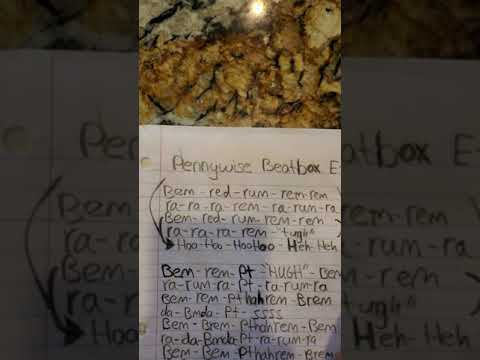 Pennywise Beatbox E-
Bem-red-rum-rem-rem
ra-ra-ra-rem-ra-rum-ra
Bem-red-rum-rem-rem
ra-ra-ra-rem-"turgh"
Hoo-Hoo-HooHoo-Heh-Heh
Bem-rem-Pt-"HUGH"-Bem
ra-rum-ra-pt-ra-rum-ra
Bem-rem-Pthahrem-Brem
da-Bmda-Pt-ssss
Bem-Brem-Pthahrem-Bem
ra-da-Bamda-Pt-ra-rum-ra
Bem-Bem-Pthahrem-Brem